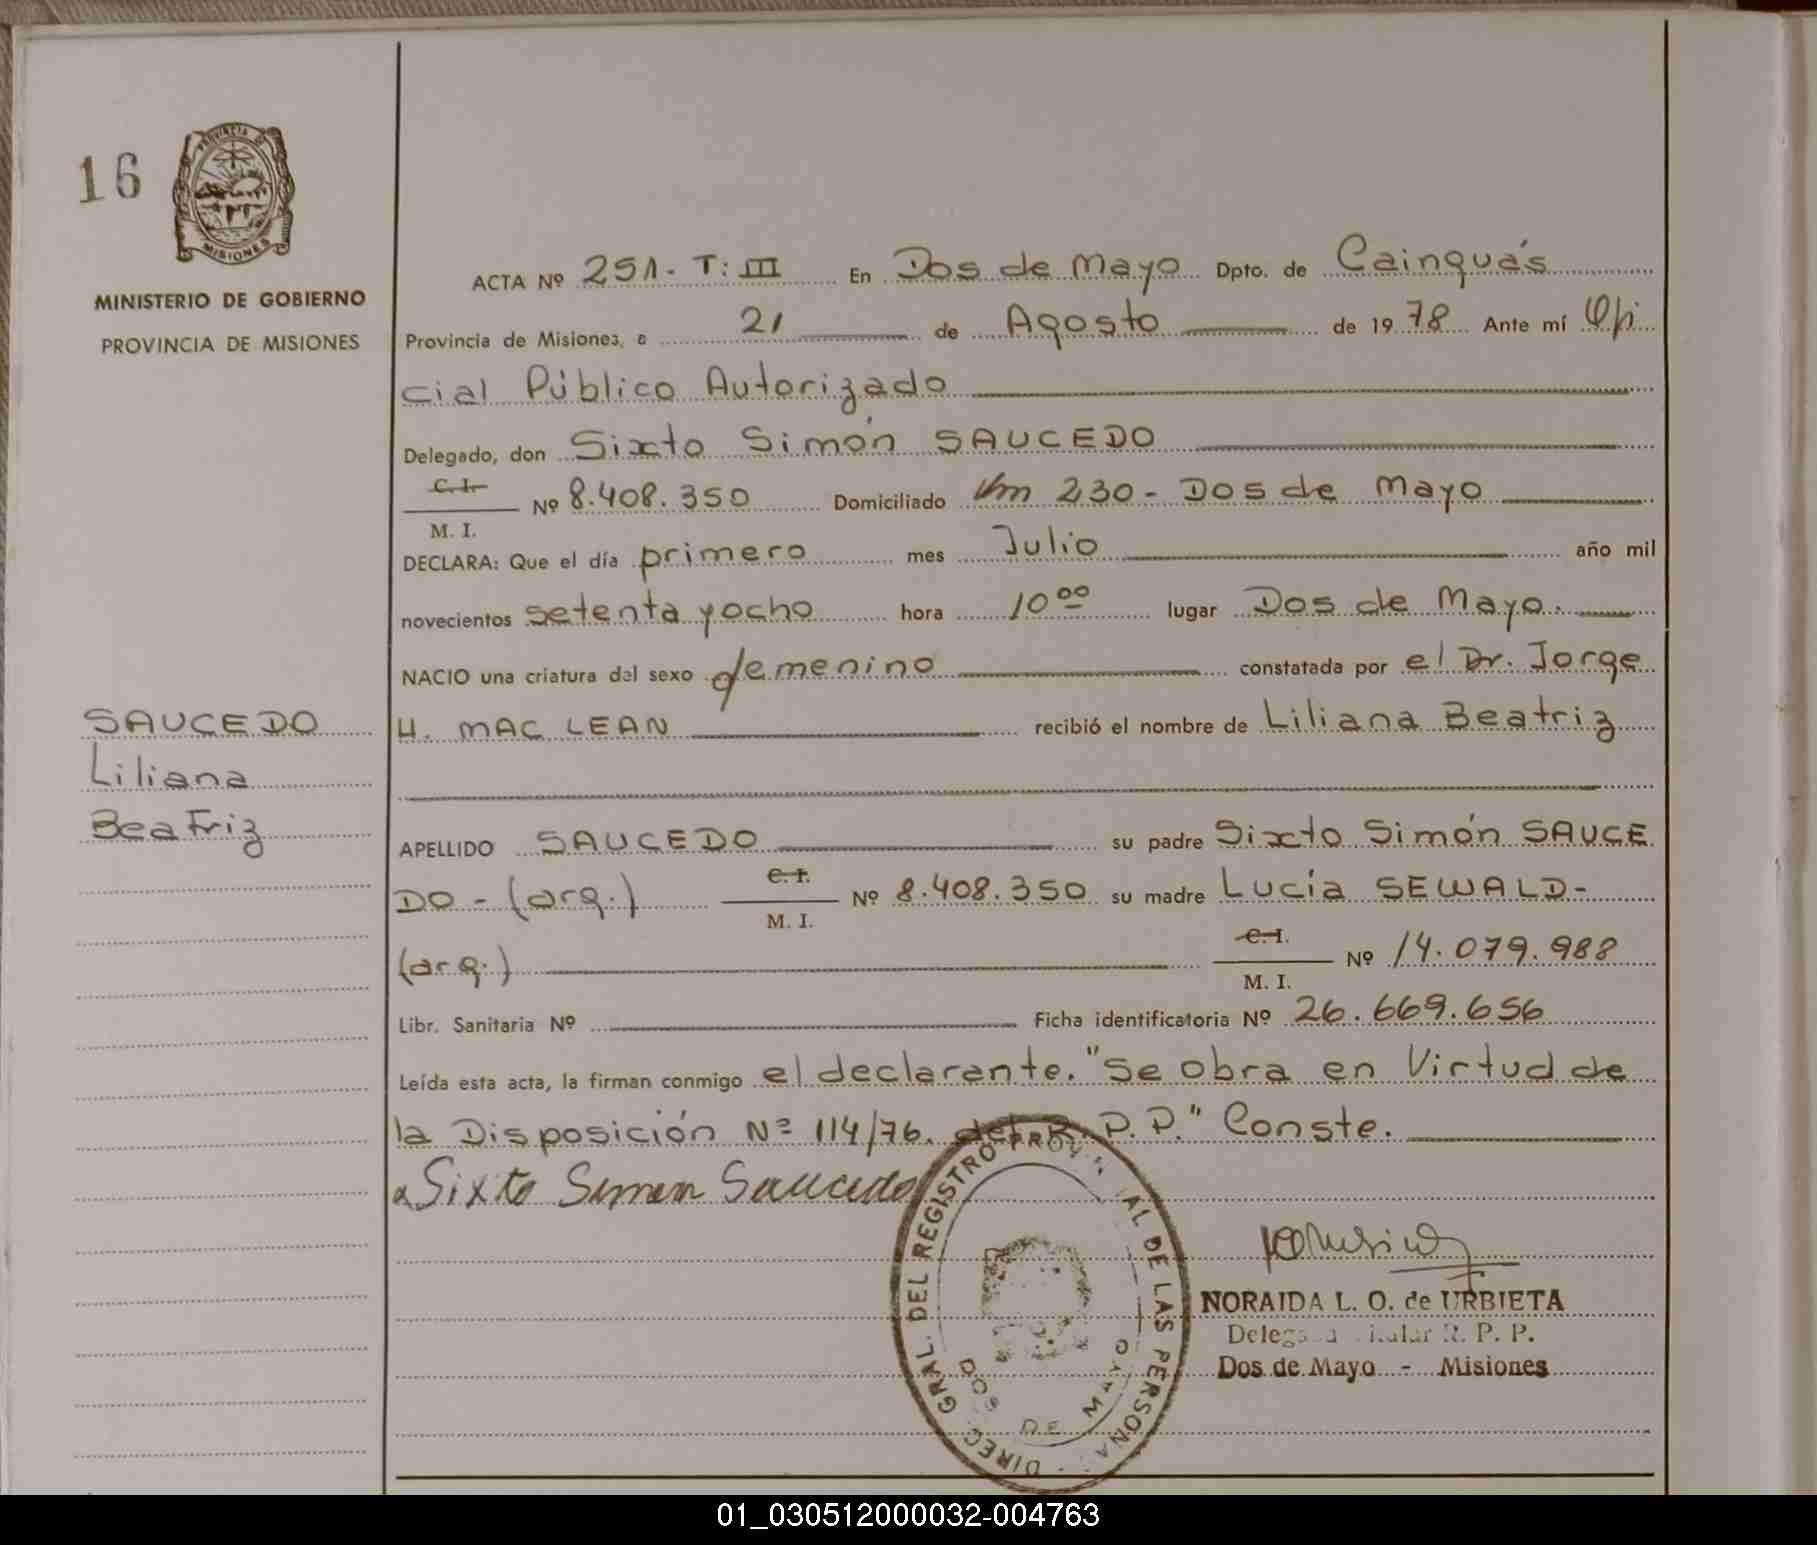 16
PROVINCIA DE
MISIONES
MINISTERIO DE GOBIERNO
PROVINCIA DE MISIONES
SAUCEDO
Liliana
Beatriz
ACTA Nº 251.- T: III En Dos de Mayo Dpto. de Cainguás
Provincia de Misiones, a 21 de Agosto de 19 78 Ante mí Ofi
cial Público Autorizado
Delegado, don Sixto Simón SAUCEDO
C. I.
M. I. Nº 8.408.350 Domiciliado Km 230 - Dos de Mayo
DECLARA: Que el día primero mes Julio año mil
novecientos setenta y ocho hora 10 00 lugar Dos de Mayo.
NACIO una criatura del sexo femenino constatada por el Dr. Jorge
H. MAC LEAN recibió el nombre de Liliana Beatriz
APELLIDO SAUCEDO su padre Sixto Simón SAUCE
DO - (arg.) C. I. M. I. Nº 8.408.350 su madre Lucía SEWALD -
(arg.) C. I. M. I. Nº 14.079.988
Libr. Sanitaria Nº Ficha identificatoria Nº 26.669.656
Leída esta acta, la firman conmigo el declarante. "Se obra en Virtud de
la Disposición Nº 114/76. del R. P. P." Conste.
Sixto Simon Saucedo
DIREC. GRAL. DEL REGISTRO PROV AL DE LAS PERSONA
DOS DE MAYO
NORAIDA L. O. de URBIETA
R. P. P.
Dos de Mayo - Misiones
01_030512000032-004763